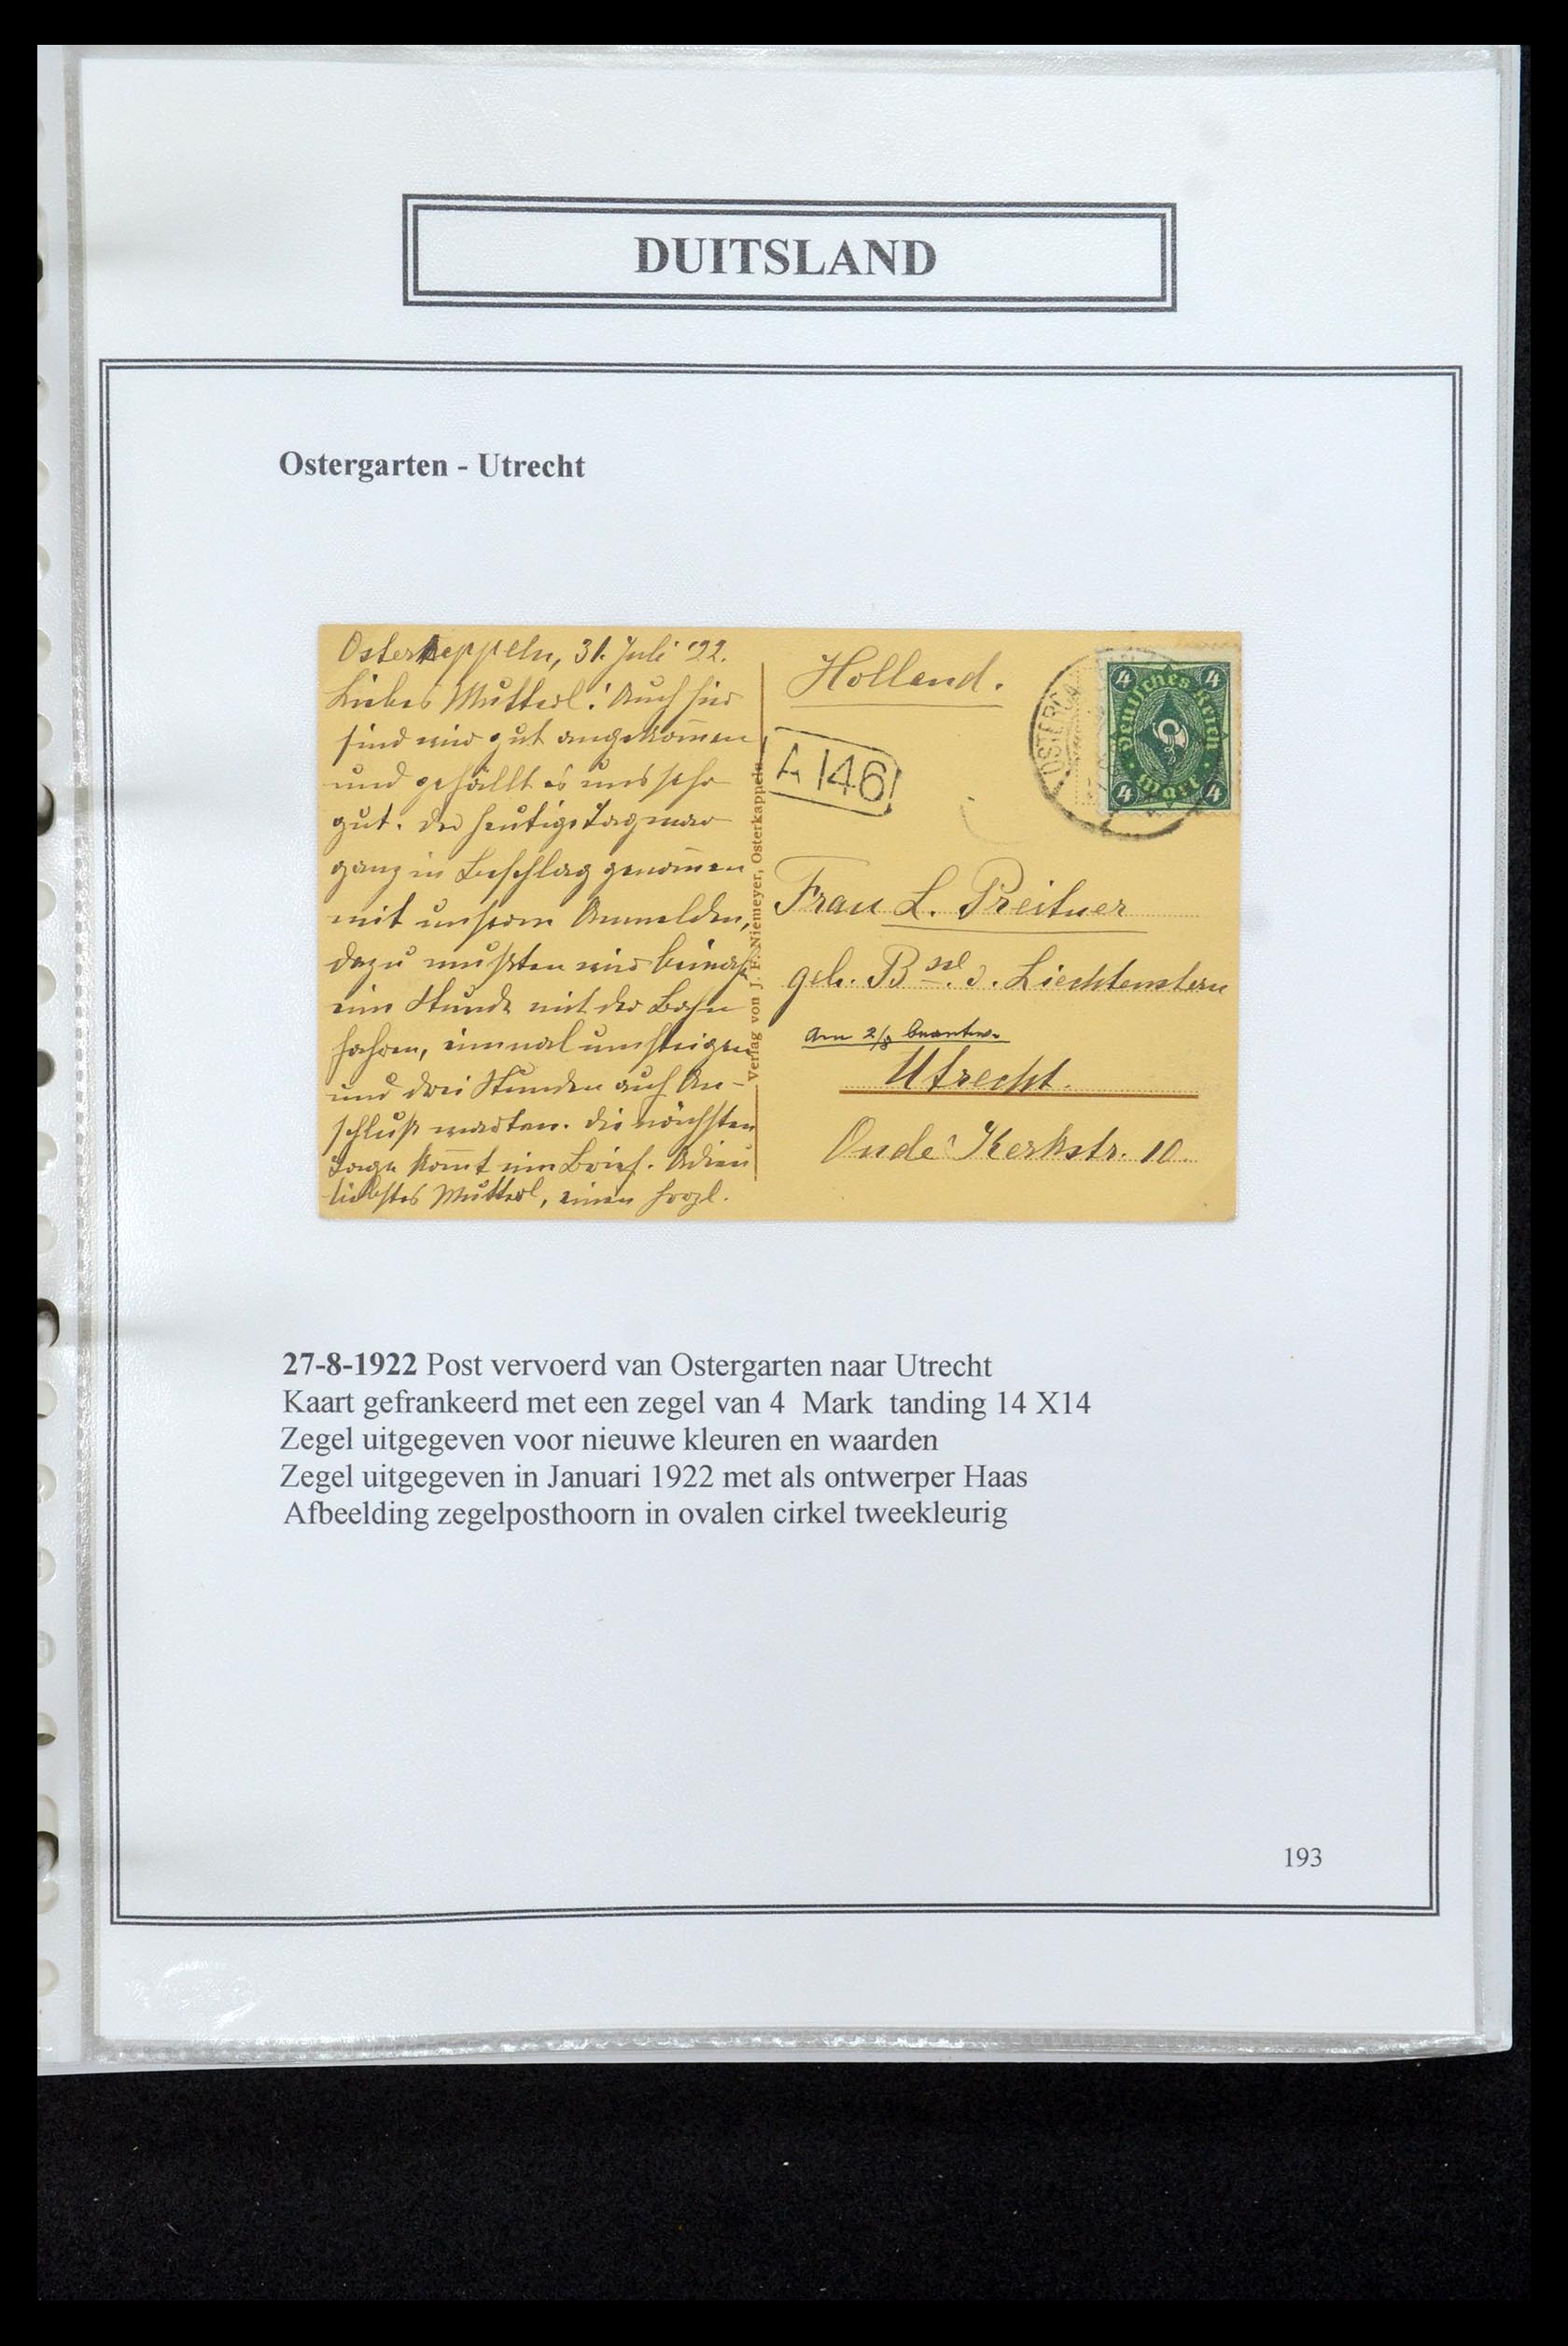 DUITSLAND
Ostergarten - Utrecht
Osterkappeln, 31. Juli '22.
Liebes Mutterl! Auch hier
sind wir gut angekom̄en
und gefällt es uns sehr
gut. Der heutige Tag war
ganz in Beschlag genom̄en
mit unserem Anmelden,
dazu mußten wir beinah
eine Stunde mit der Bahn
fahren, einmal umsteigen
und drei Stunden auf An-
schluß warten. Die nächsten
Tage kom̄t ein Brief. Adieu
liebstes Mutterl, einen herzl.
Verlag von J. F. Niemeyer, Osterkappeln
Holland.
A 146
OSTERC
4 4
Deutsches Reich
Mark
4 4
Frau L. Preitner
geb. B
Liechtenstern
am 2/8 beantw.
Utrecht.
Oude Kerkstr. 10.
27-8-1922 Post vervoerd van Ostergarten naar Utrecht
Kaart gefrankeerd met een zegel van 4 Mark tanding 14 X14
Zegel uitgegeven voor nieuwe kleuren en waarden
Zegel uitgegeven in Januari 1922 met als ontwerper Haas
Afbeelding zegelposthoorn in ovalen cirkel tweekleurig
193